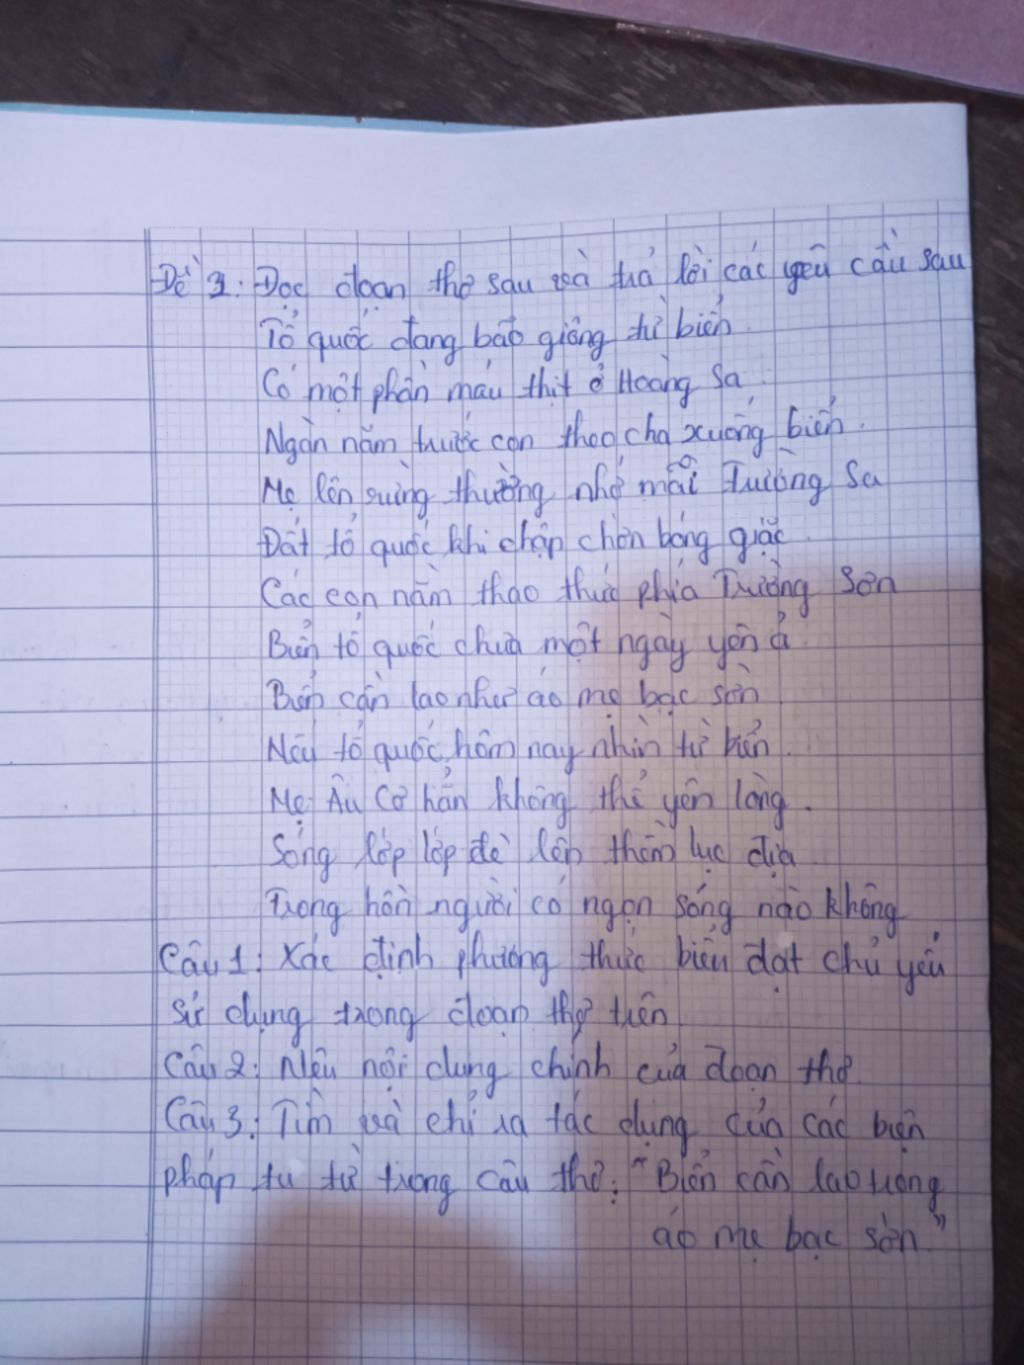 Đề 1: Đọc đoạn thơ sau và trả lời các yêu cầu sau
Tổ quốc đang bão giông từ biển.
Có một phần máu thịt ở Hoàng Sa.
Ngàn năm trước con theo cha xuống biển.
Mẹ lên rừng thương nhớ mãi Trường Sa
Đất tổ quốc khi chập chờn bóng giặc.
Các con nằm thao thức phía Trường Sơn
Biển tổ quốc chưa một ngày yên ả.
Biển cần lao như áo mẹ bạc sờn
Nếu tổ quốc hôm nay nhìn từ biển.
Mẹ Âu Cơ hẳn không thể yên lòng.
Sóng lớp lớp đè lên thềm lục địa
Trong hồn người có ngọn sóng nào không
Câu 1: Xác định phương thức biểu đạt chủ yếu
sử dụng trong đoạn thơ trên
Câu 2: Nêu nội dung chính của đoạn thơ.
Câu 3: Tìm và chỉ ra tác dụng của các biện
pháp tu từ trong câu thơ: "Biển cần lao
áo mẹ bạc sờn."